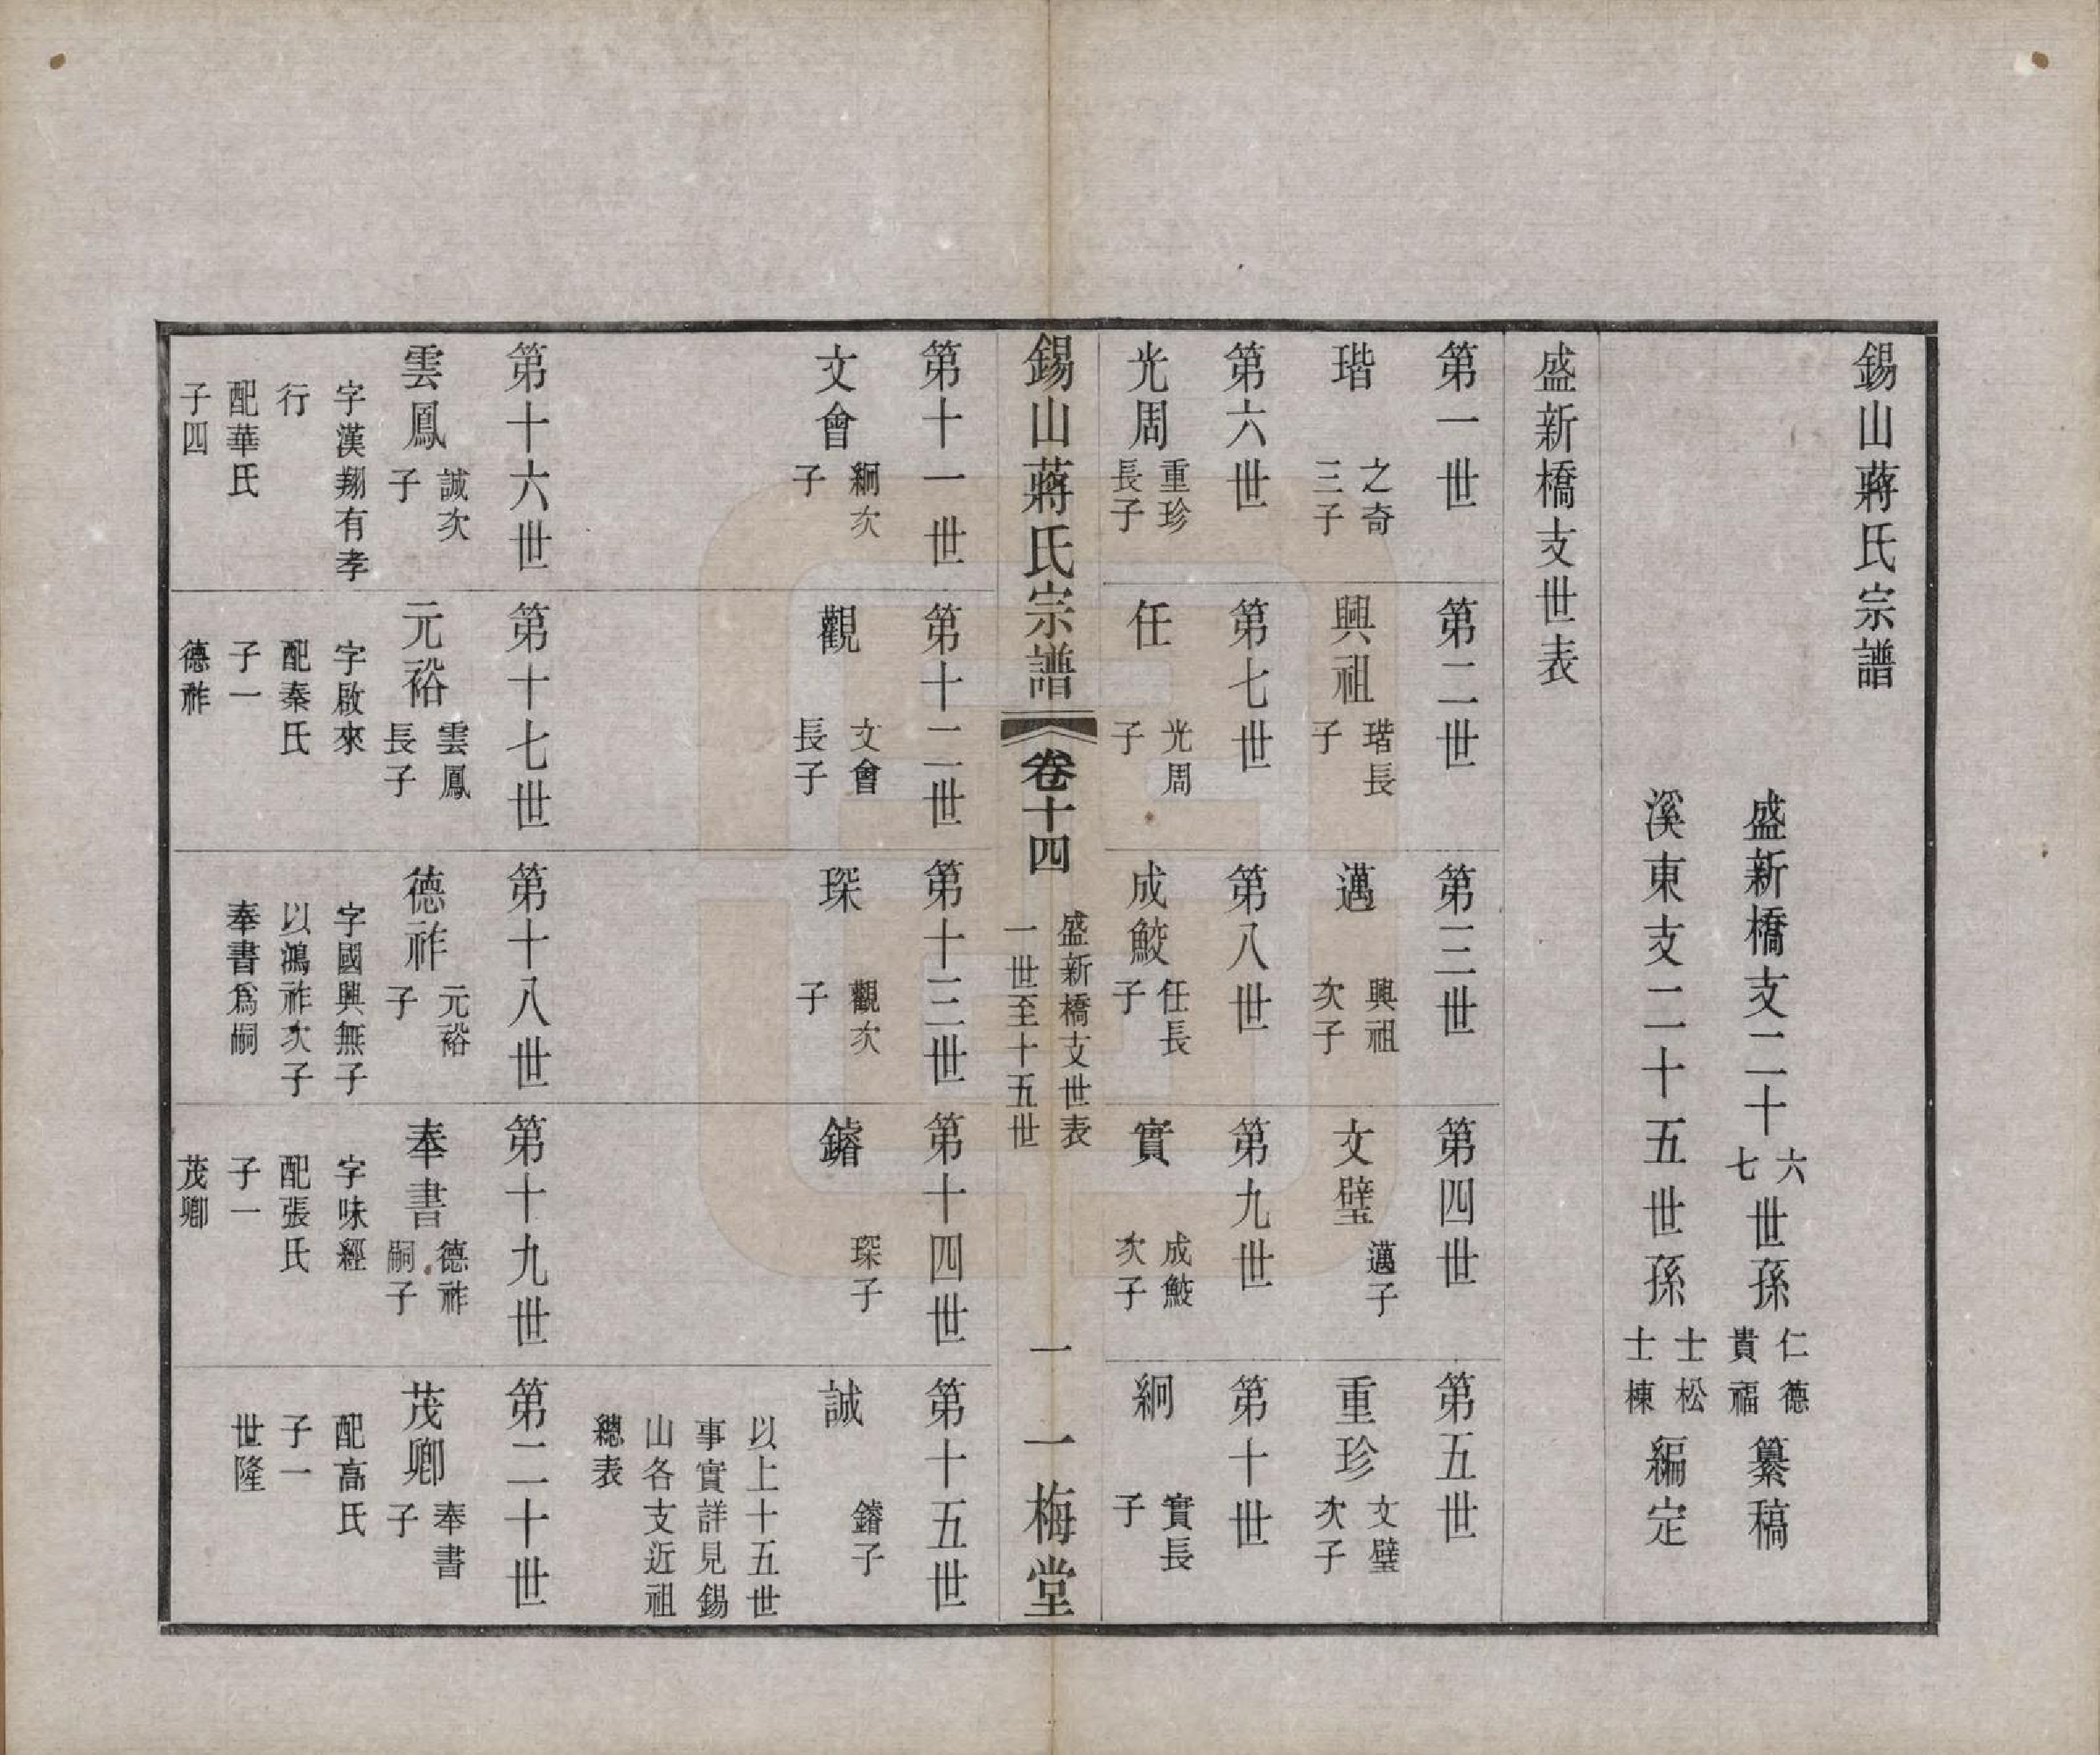 錫山蔣氏宗譜
盛新橋支二十六七世孫仁德貴福纂稿
溪東支二十五世孫士松士棟編定
盛新橋支世表
第一世
第二世
第三世
第四世
第五世
瑎 之奇三子
興祖 瑎長子
邁 興祖次子
文璧 邁子
重珍 文璧次子
第六世
第七世
第八世
第九世
第十世
光周 重珍長子
任 光周子
成鮫 任長子
實 成鮫次子
絅 實長子
錫山蔣氏宗譜 卷十四 盛新橋支世表 一世至十五世 一 一梅堂
第十一世
第十二世
第十三世
第十四世
第十五世
文會 絅次子
觀 文會長子
琛 觀次子
鏥 琛子
誠 鏥子
以上十五世
事實詳見錫
山各支近祖
總表
第十六世
第十七世
第十八世
第十九世
第二十世
雲鳳 誠次子
字漢翔有孝
行
配華氏
子四
元裕 雲鳳長子
字啟來
配秦氏
子一
德祚
德祚 元裕子
字國興無子
以鴻祚次子
奉書爲嗣
奉書 德祚嗣子
字味經
配張氏
子一
茂卿
茂卿 奉書子
配高氏
子一
世隆